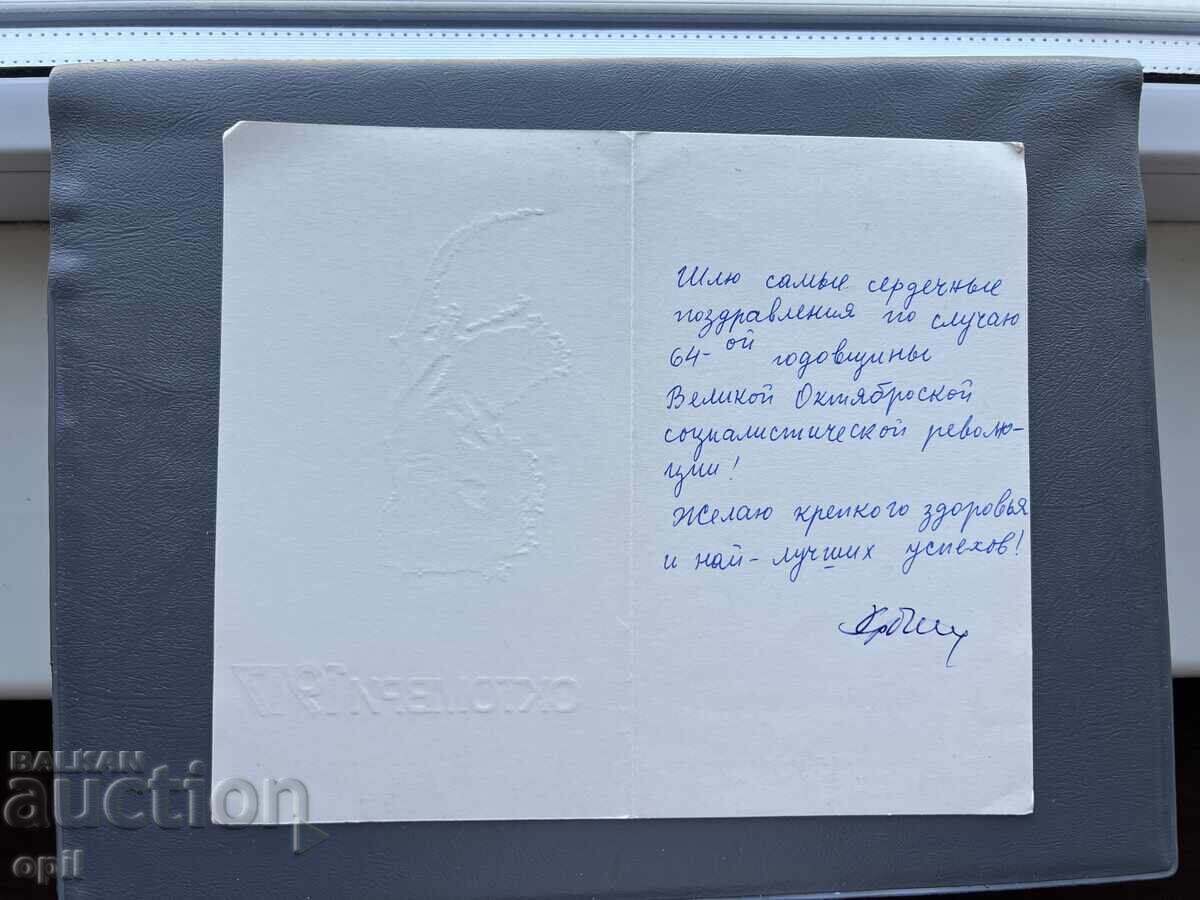 Шлю самые сердечные
поздравления по случаю
64-ой годовщины
Великой Октяброской
социалистической револю-
ции!
Желаю крепкого здоровья
и най-лучших успехов!
ОКТОМВРИ 1917
BALKAN
auction
opil